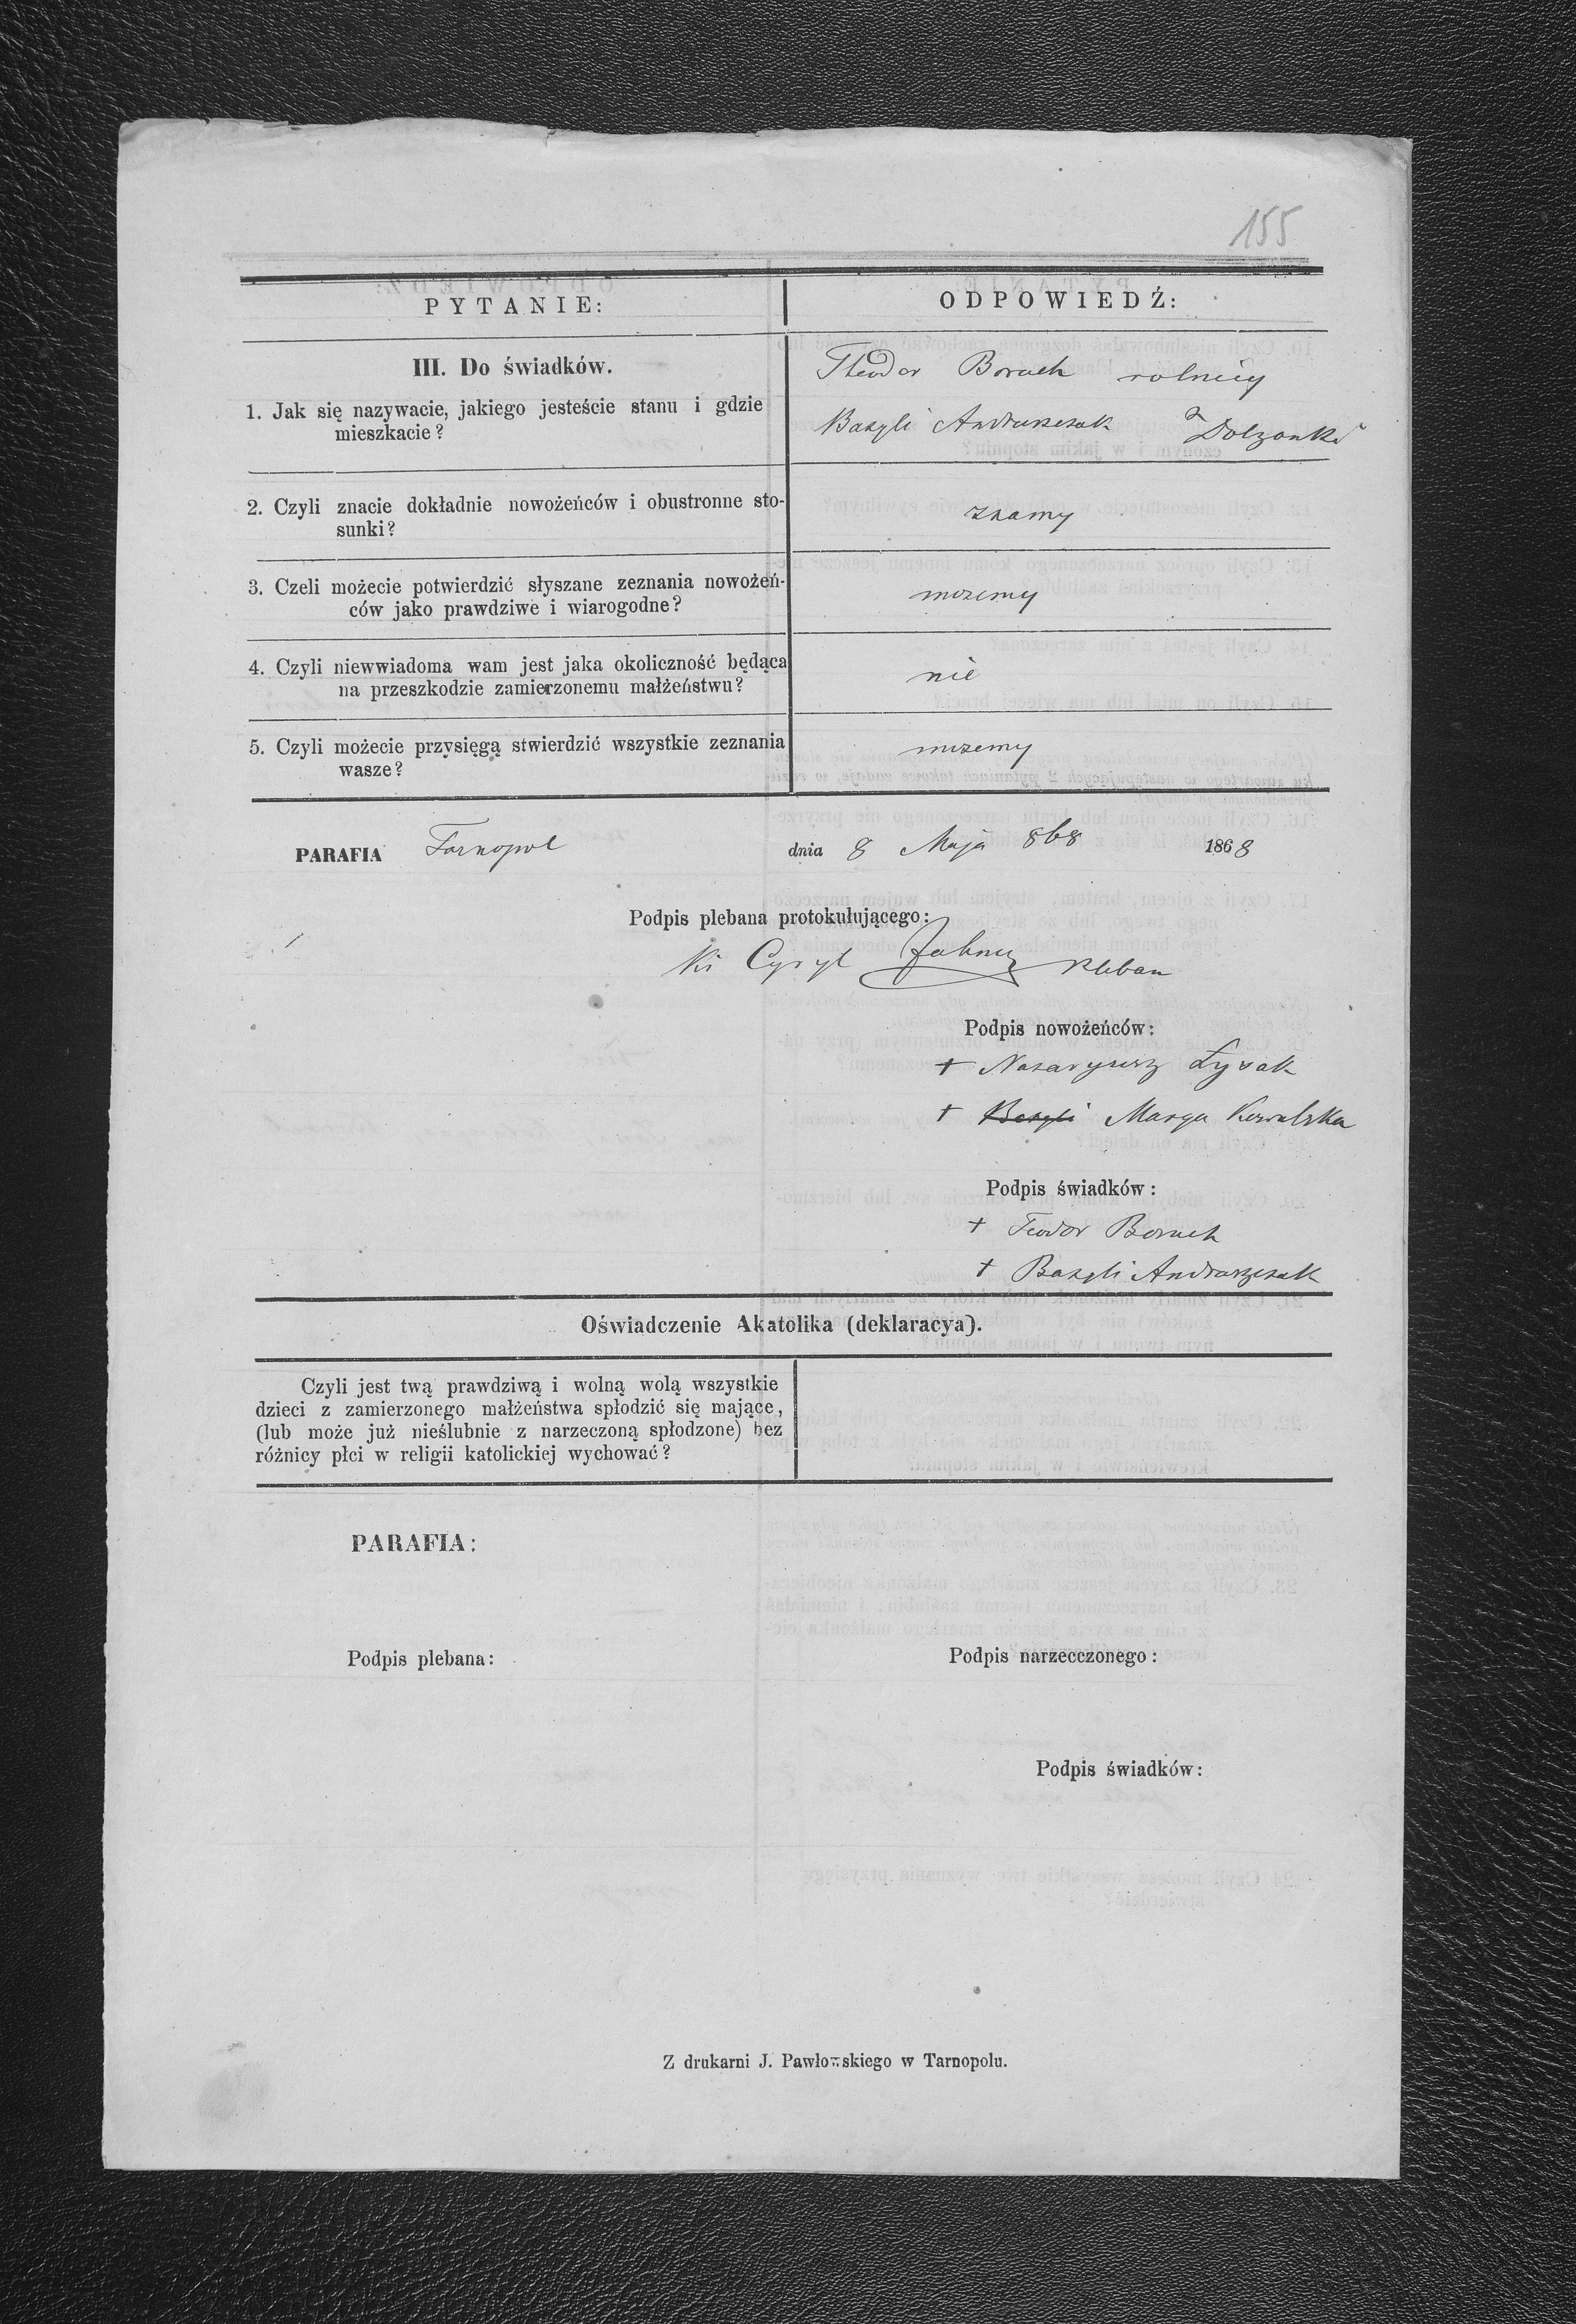 155
PYTANIE:
ODPOWIEDŹ:
III. Do świadków.
1. Jak się nazywacie, jakiego jesteście stanu i gdzie
mieszkacie?
Theodor Boruch rolnicy
Bazyli Andruszczak z Dolzanki
2. Czyli znacie dokładnie nowożeńców i obustronne sto-
sunki?
znamy
3. Czeli możecie potwierdzić słyszane zeznania nowożeń-
ców jako prawdziwe i wiarogodne?
mozemy
4. Czyli niewwiadoma wam jest jaka okoliczność będąca
na przeszkodzie zamierzonemu małżeństwu?
nie
5. Czyli możecie przysięgą stwierdzić wszystkie zeznania
wasze?
mozemy
PARAFIA Tarnopol dnia 8 Maja 868 1868
Podpis plebana protokułującego:
Ks Cyryl pleban
Podpis nowożeńców:
+ Nazaryusz Łysak
+ Bazyli Marya Kowalska
Podpis świadków:
+ Teodor Boruch
+ Bazyli Andruszczak
Oświadczenie Akatolika (deklaracya).
Czyli jest twą prawdziwą i wolną wolą wszystkie
dzieci z zamierzonego małżeństwa spłodzić się mające,
(lub może już nieślubnie z narzeczoną spłodzone) bez
różnicy płci w religii katolickiej wychować?
PARAFIA:
Podpis plebana:
Podpis narzecczonego:
Podpis świadków:
Z drukarni J. Pawłowskiego w Tarnopolu.